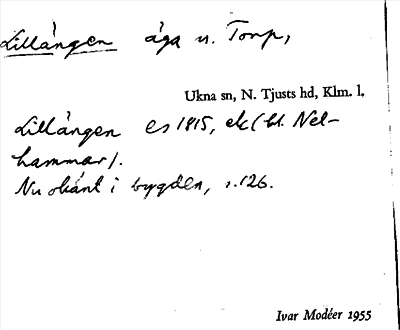 Lillången äga u. Torp,
Ukna sn, N. Tjusts hd, Klm. l.
Lillången es 1815, ek (bl. Nel-
hammar).
Nu okänt i bygden, s. 126.
Ivar Modéer 1955